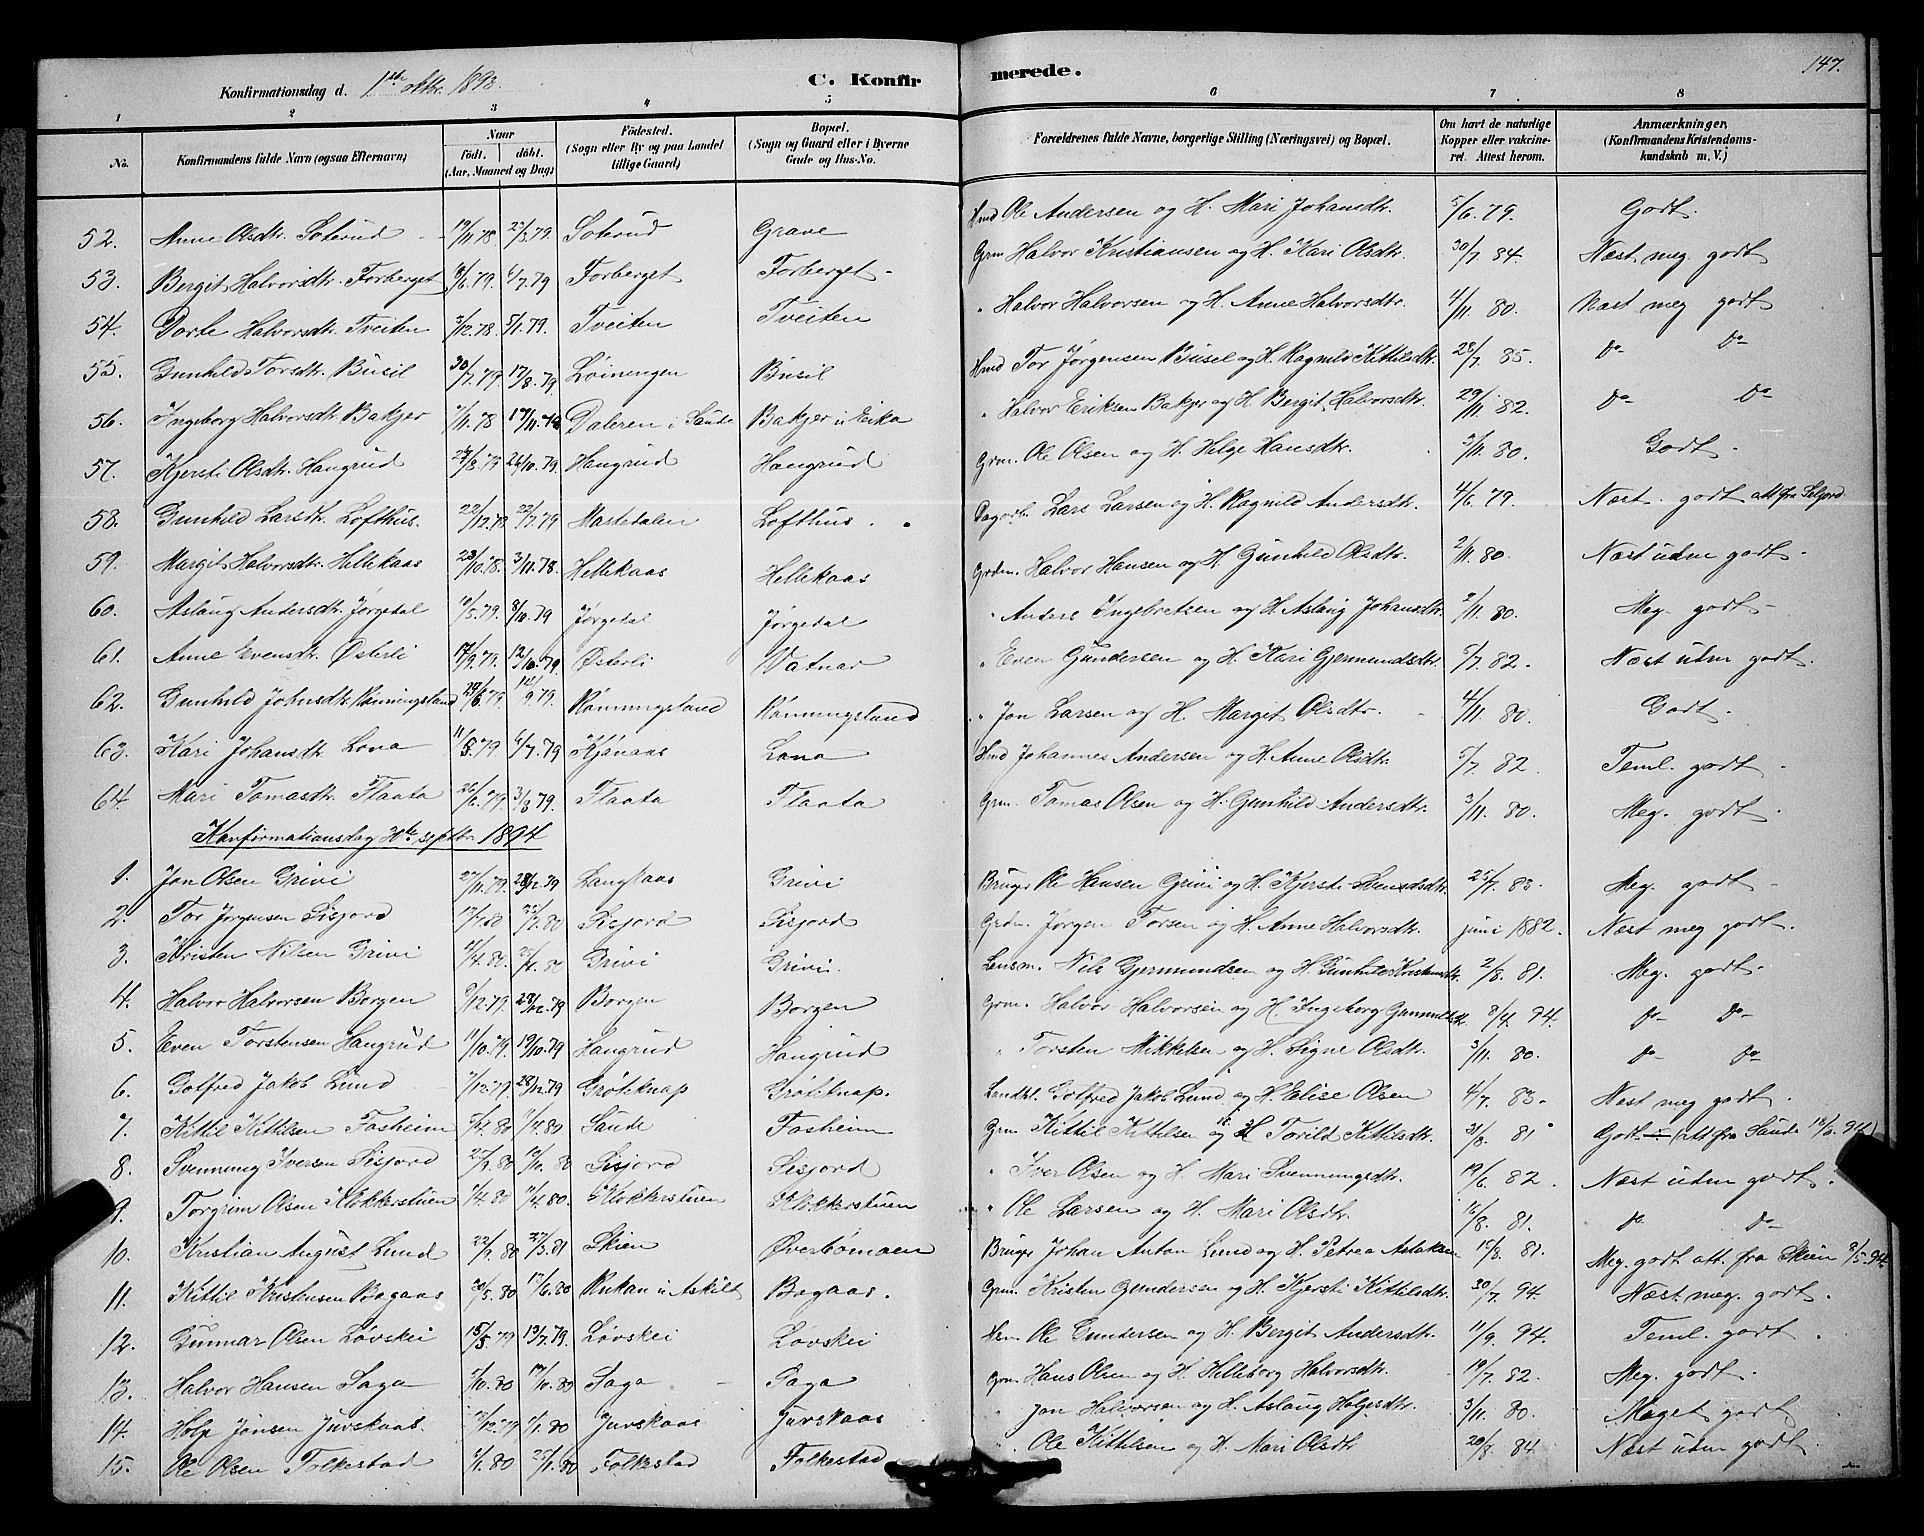 147.
Konfirmationsdag d. 1ste oktbr. 1893. C. Konfirmerede.
1 2 3 4 5 6 7 8
No. Konfirmandens fulde Navn (ogsaa Efternavn) Naar födt. döbt. (Aar, Maaned og Dag) Födested. (Sogn eller By og paa Landet tillige Gaard) Bopæl. (Sogn og Gaard eller i Byerne Gade og Hus-No. Forældrenes fulde Navne, borgerlige Stilling (Næringsvei) og Bopæl. Om havt de naturlige Kopper eller vakcineret. Attest herom. Anmærkninger, (Konfirmandens Kristendomskundskab m. V.)
52. Anne Olsdtr. Soterud 19/11.78 23/3.79. Soterud Grave Hmd Ole Andersen og H. Mari Johansdtr. 5/6.79. Godt.
53. Bergit Halvorsdtr. Forberget 8/6.79. 6/7.79 Forberget Forberget Grm Halvor Kristiansen og H. Kari Olsdtr. 30/7. 84. Næst. meg. godt
54. Dorte Halvorsdtr. Tveiten 3/12.78. 5/1.79. Tveiten Tveiten " Halvor Halvorsen og H. Anne Halvorsdtr. 4/11. 80. Næst meg godt
55. Gunhild Torsdtr. Busil 30/7.79 17/8.79 Løiningen Busil Hmd Tor Jørgensen Busel og H. Ragnild Kittilsdtr. 23/7. 85. do do
56. Ingeborg Halvorsdtr. Bakjer 7/11.78 17/11.78 Daleren i Saude Bakjer u Eika " Halvor Eriksen Bakjer og H. Bergit Halvorsdtr. 29/11. 82. do do
57. Kjersti Olsdtr. Hangrud 27/8.79 26/10.79. Hangrud Hangrud Grm. Ole Olsen og H. Helge Hansdtr. 3/11. 80. Godt.
58. Gunhild Larsdtr. Lofthus. 22/12.78 22/7.79 Mastedalen Lofthus. Dagarb. Lars Larsen og H. Ragnild Andersdtr. 4/6.79 Næst. godt att fra Seljord
59. Margit Halvorsdtr. Hellekaas 23/10.78. 3/11.78. Hellekaas Hellekaas Grdm. Halvor Hansen og H. Gunhild Olsdtr. 2/11. 80. Næst udm godt.
60. Aslaug Andersdtr. Jørgedal 10/5.79. 8/10.79 Jørgedal Jørgedal " Anders Ingebretsen og H. Aslaug Johansdtr. 2/11. 80. Meg. godt
61. Anne Evensdtr. Østerli 17/9.79. 12/10.79. Østerli Vatnar " Even Gundersen og H. Kari Gjermundsdtr. 5/7. 82. Næst udm godt.
62. Gunhild Johnsdtr. Rønningsland 29/6.79. 14/9.79. Rønningsland Rønningsland " Jon Larsen og H. Margit Olsdtr. 4/11. 80. Godt.
63. Kari Johansdtr. Lona 11/5.79 6/7.79 Kjønaas Lona Hmd Johannes Andersen og H. Anne Olsdtr. 5/7. 82. Teml. godt
64. Mari Tomasdtr. Flaata 3/8.79. Flaata Flaata Grm. Tomas Olsen og H. Gunhild Andersdtr. 3/11. 80. Meg. godt
Konfirmationsdag septbr. 1894
1. Jon Olsen Grivi 27/11.79. 28/12.79 Langkaas Grivi Bruger Ole Hansen Grivi og H. Kjersti 25/7. 83. Meg. godt
2. Tor Jørgensen Sisjord 17/1.80 25/2.80 Sisjord Sisjord Grdm. Jørgen Torsen og H. Anne Halvorsdtr. juni 1882. Næst meg godt.
3. Kristen Nilsen Grivi 4/4.80. 25/4.80 Grivi Grivi. Lensm. Nils Gjermundsen og H. Gunhild Kristensdtr. 2/8. 81. Meg. godt
4. Halvor Halvorsen Borgen 9/12.79 28/12.79 Borgen Borgen Grm. Halvor Halvorsen og H. Ingeborg Gunnulfsdtr. 8/4. 94. do do
5. Even Torstensen Hangrud 11/10.79. 19/10.79 Hangrud Hangrud " Torsten Mikkelsen og H. Signe Olsdtr. 3/11. 80. do do
6. Golfred Jakob Lund 7/12.79 28/12.79 Grøtknap Grøtknap. Landh. Golfred Jakob Lund og H. Elise Olsen 4/7. 83. Næst meg godt
7. Kittil Kittilsen Fosheim 7/4.80 Saude Fosheim Grm Kittil Kittilsen og H Torild Kittilsdtr. 31/8. 81 Godt (att fra Saude 94)
8. Svenning Iversen Sisjord 10/10.80 Sisjord Sisjord " Iver Olsen og H. Mari Svenningsdtr. 19/6. 82. Næst udm godt.
9. Torgrim Olsen Klokkerstuen 1/4.80 11/4.80 Klokkerstuen Klokkerstuen " Ole Larsen og H. Mari Olsdtr. 16/8. 81. do do
10. Kristian August Lund 22/9.80 27/3.81 Skien Øverbømoen Bruger Johan Anton Lund og H. Petrea Aslaksen 15/8. 81. Meg. godt att. fra Skien 8/5.94.
11. Kittil Kristensen Bøgaas 20/5.80 13/6.80 Rukan u Askilt Bøgaas. Grm. Kristen Gundersen og H. Kjersti Kittilsdtr. 30/7. 94. Næst meg. godt.
12. Gunnar Olsen Løvskei 15/5.79 13/7.79. Løvskei Løvskei Hm Ole Gundersen og H. Bergit Andersdtr. 11/9. 94. Teml. godt.
13. Halvor Hansen Saga 5/10.80 17/10.80 Saga Saga Grm. Hans Olsen og H. Helleborg Halvorsdtr. 19/7. 82. Meg. godt.
14. Holje Jonsen Juvskaas. 1/1.80 Juvskaas Juvskaas " Jon Halvorsen og H. Aslaug Holjesdtr. 3/11. 80. Meget godt
15. Ole Olsen Folkestad 6/1.80 25/1.80 Folkestad Folkestad " Ole Kittilsen og H. Mari Olsdtr 20/8. 84. Næst udm godt.